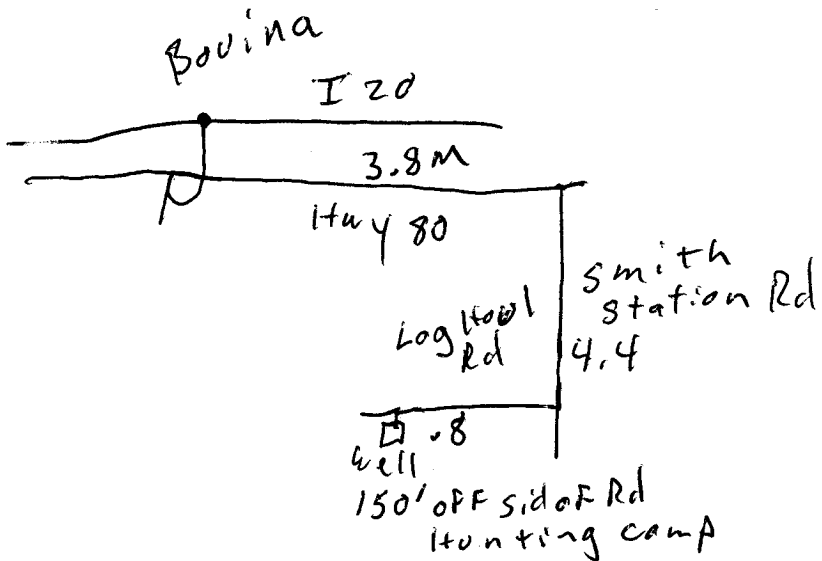 Bovina
I 20
3.8 M
Hwy 80
Smith
Station Rd
Log Howl
Rd
4.4
.8
Well
150' off sid of Rd
Hunting camp